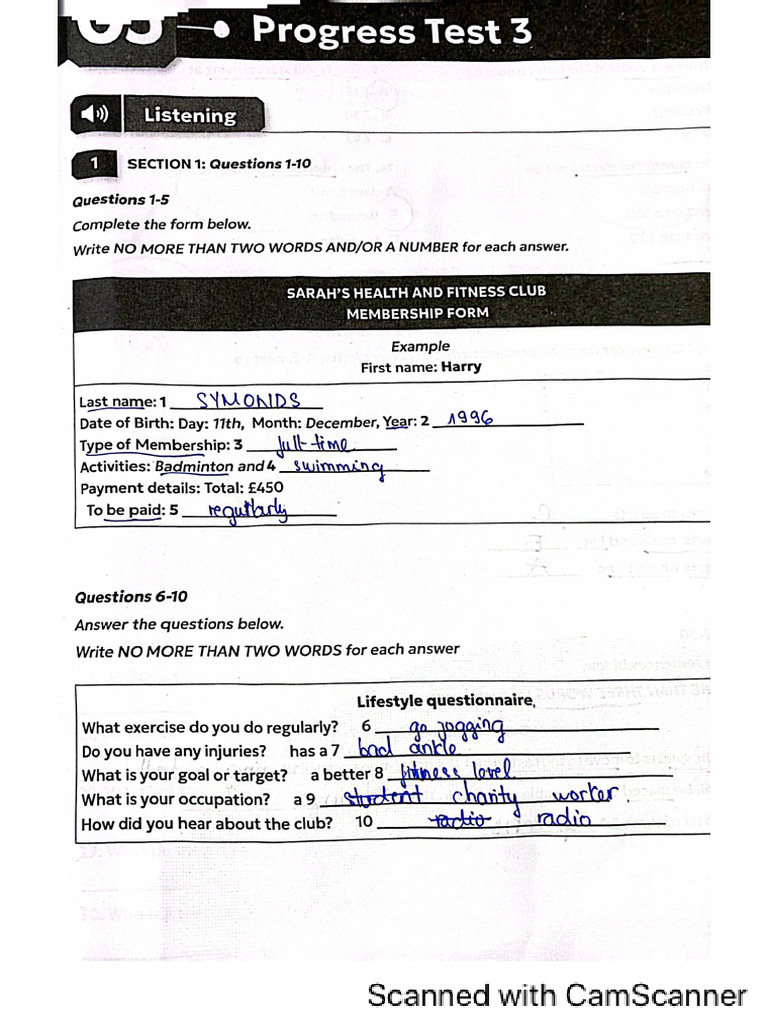 03 Progress Test 3
Listening
1 SECTION 1: Questions 1-10
Questions 1-5
Complete the form below.
Write NO MORE THAN TWO WORDS AND/OR A NUMBER for each answer.
SARAH'S HEALTH AND FITNESS CLUB
MEMBERSHIP FORM
Example
First name: Harry
Last name: 1 SYMONDS
Date of Birth: Day: 11th, Month: December, Year: 2 1996
Type of Membership: 3 full-time
Activities: Badminton and 4 swimming
Payment details: Total: £450
To be paid: 5
Questions 6-10
Answer the questions below.
Write NO MORE THAN TWO WORDS for each answer
Lifestyle questionnaire
What exercise do you do regularly? 6 go jogging
Do you have any injuries? has a 7 bad ankle
What is your goal or target? a better 8 fitness level
What is your occupation? a 9 student charity worker
How did you hear about the club? 10 radio radio
Scanned with CamScanner